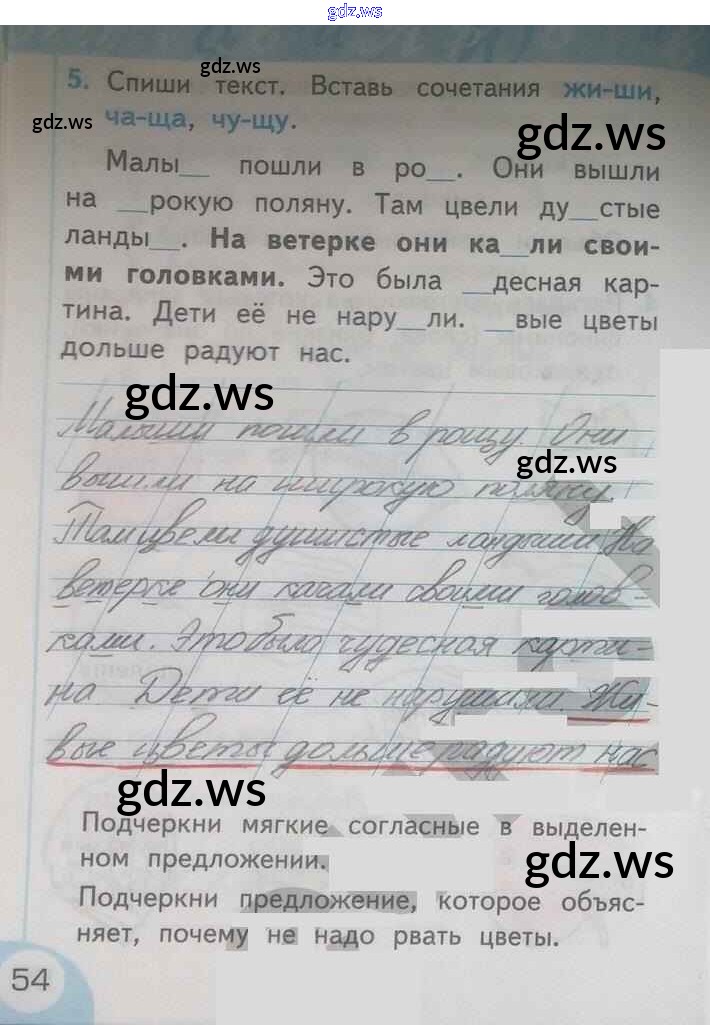 gdz.ws
gdz.ws
5. Спиши текст. Вставь сочетания жи-ши,
gdz.ws
ча-ща, чу-щу.
gdz.ws
Малы__ пошли в ро__. Они вышли
на __рокую поляну. Там цвели ду__стые
ланды__. На ветерке они ка__ли свои-
ми головками. Это была __десная кар-
тина. Дети её не нару__ли. __вые цветы
дольше радуют нас.
gdz.ws
Малыши пошли в рощу. Они
gdz.ws
вышли на широкую поляну.
Там цвели душистые ландыши На
ветерке они качали своими голов-
ками. Это была чудесная карти-
на Дети её не нарушили. Жи-
вые цветы дольше радуют нас
gdz.ws
Подчеркни мягкие согласные в выделен-
ном предложении.
gdz.ws
Подчеркни предложение, которое объяс-
няет, почему не надо рвать цветы.
54